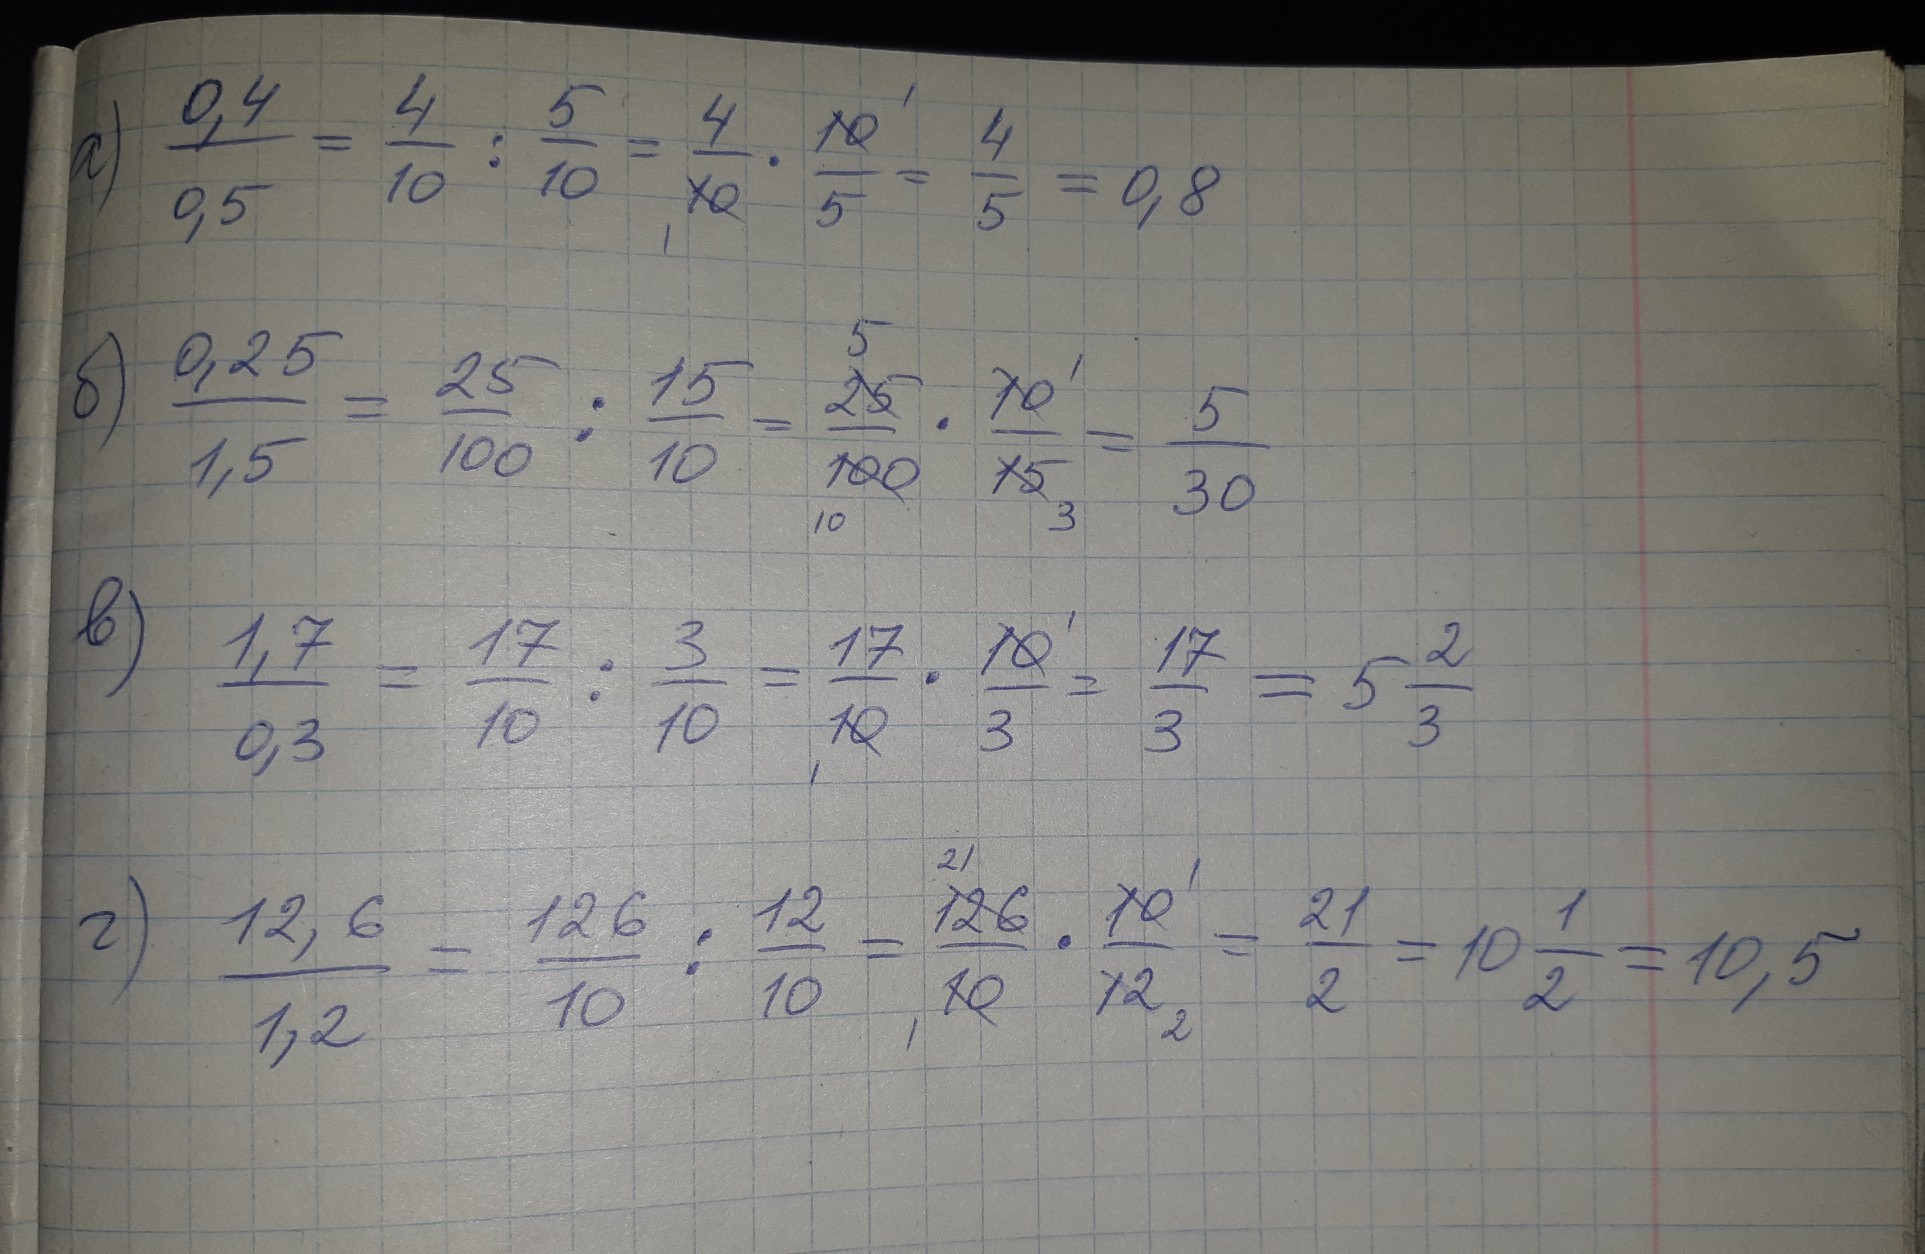 а) 0,4/0,5 = 4/10 : 5/10 = 4/10 1 · 10 1/5 = 4/5 = 0,8
б) 0,25/1,5 = 25/100 : 15/10 = 25 5/100 10 · 10 1/15 3 = 5/30
в) 1,7/0,3 = 17/10 : 3/10 = 17/10 1 · 10 1/3 = 17/3 = 5 2/3
г) 12,6/1,2 = 126/10 : 12/10 = 126 21/10 1 · 10 1/12 2 = 21/2 = 10 1/2 = 10,5